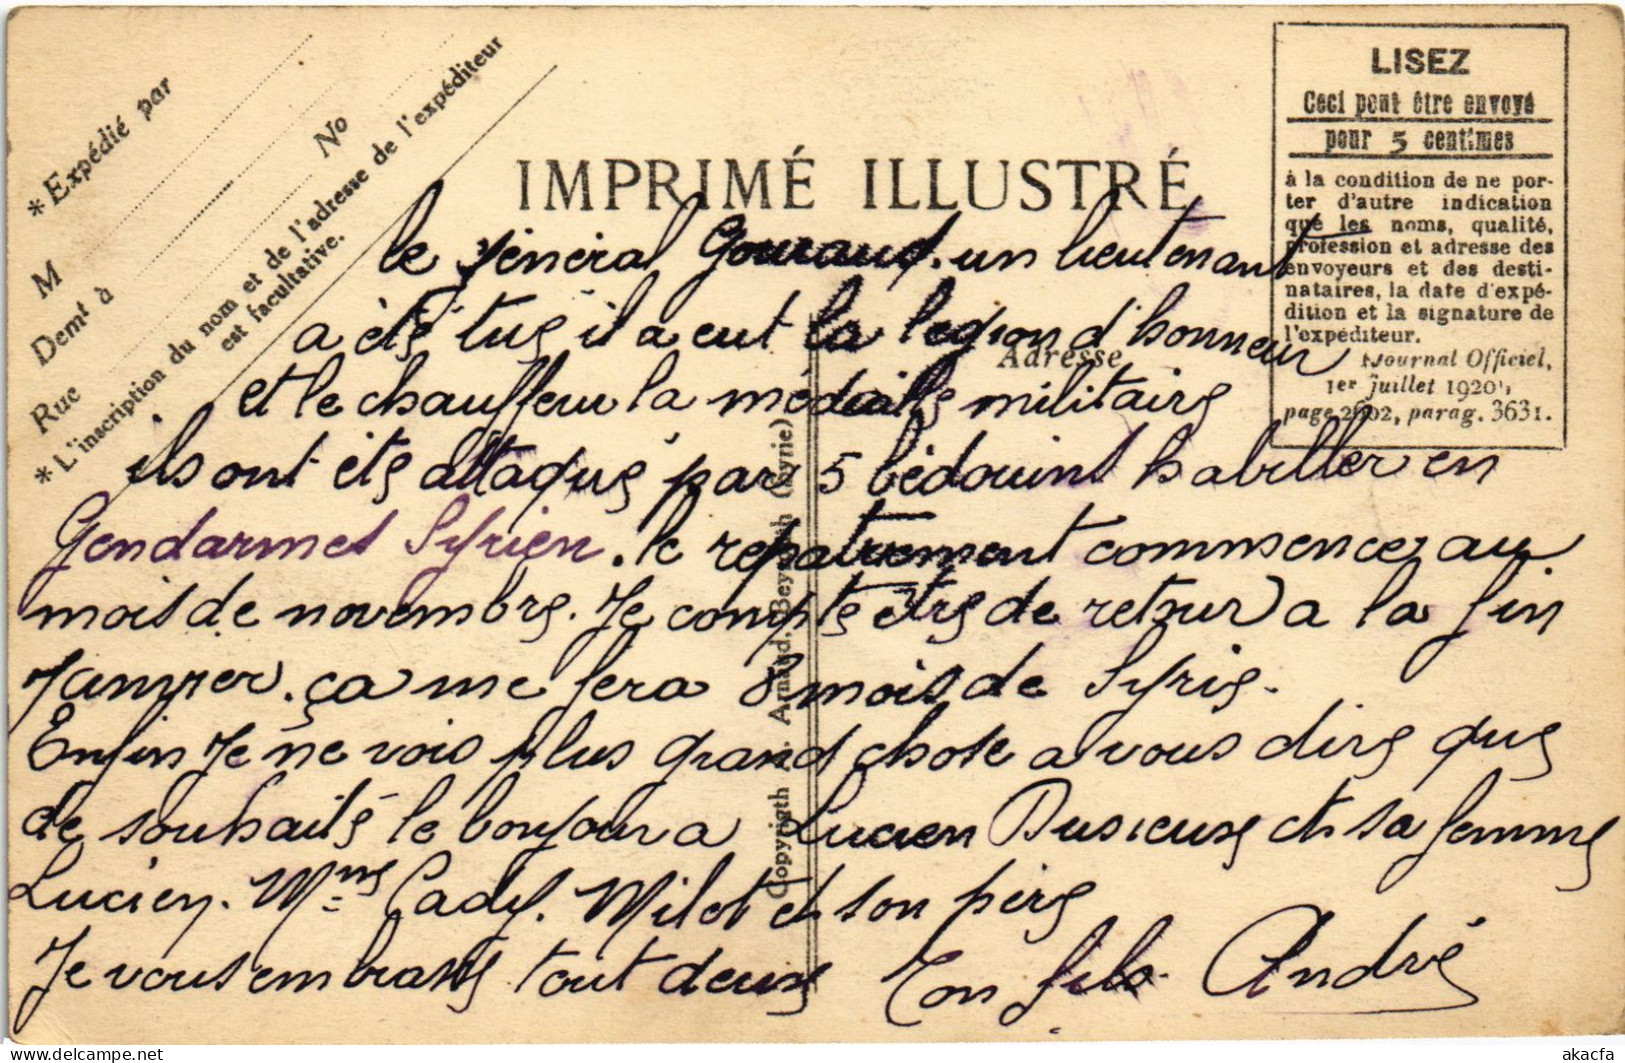 * Expédié par
M
Nº
Demt à
Rue
* L'inscription du nom et de l'adresse de l'expéditeur
est facultative.
IMPRIMÉ ILLUSTRÉ
LISEZ
Ceci peut être envoyé
pour 5 centimes
à la condition de ne por-
ter d'autre indication
que les noms, qualité,
profession et adresse des
envoyeurs et des desti-
nataires, la date d'expé-
dition et la signature de
l'expéditeur.
Journal Officiel,
1er juillet 1920,
page 2602, parag. 3631.
Adresse
Copyrigth A. Arnaud. Beyrouth (Syrie)
le général Gouraud. un lieutenant
a été tué il a eut la legion d'honneur
et le chauffeur la médaille militaire
ils ont été attaqué par 5 bédouint habiller en
Gendarmes Syrien. le repatriement commencer au
mois de novembre. Je compte etre de retour a la fin
Janvier. ça me fera 8 mois de Syrie.
Enfin Je ne vois plus grand chose a vous dire que
de souhaité le bonjour a Lucien Dusieux et sa femme
Lucien. Mme Cady. Milot et son père
Je vous embrasse tout deux Ton fils André
akacfa